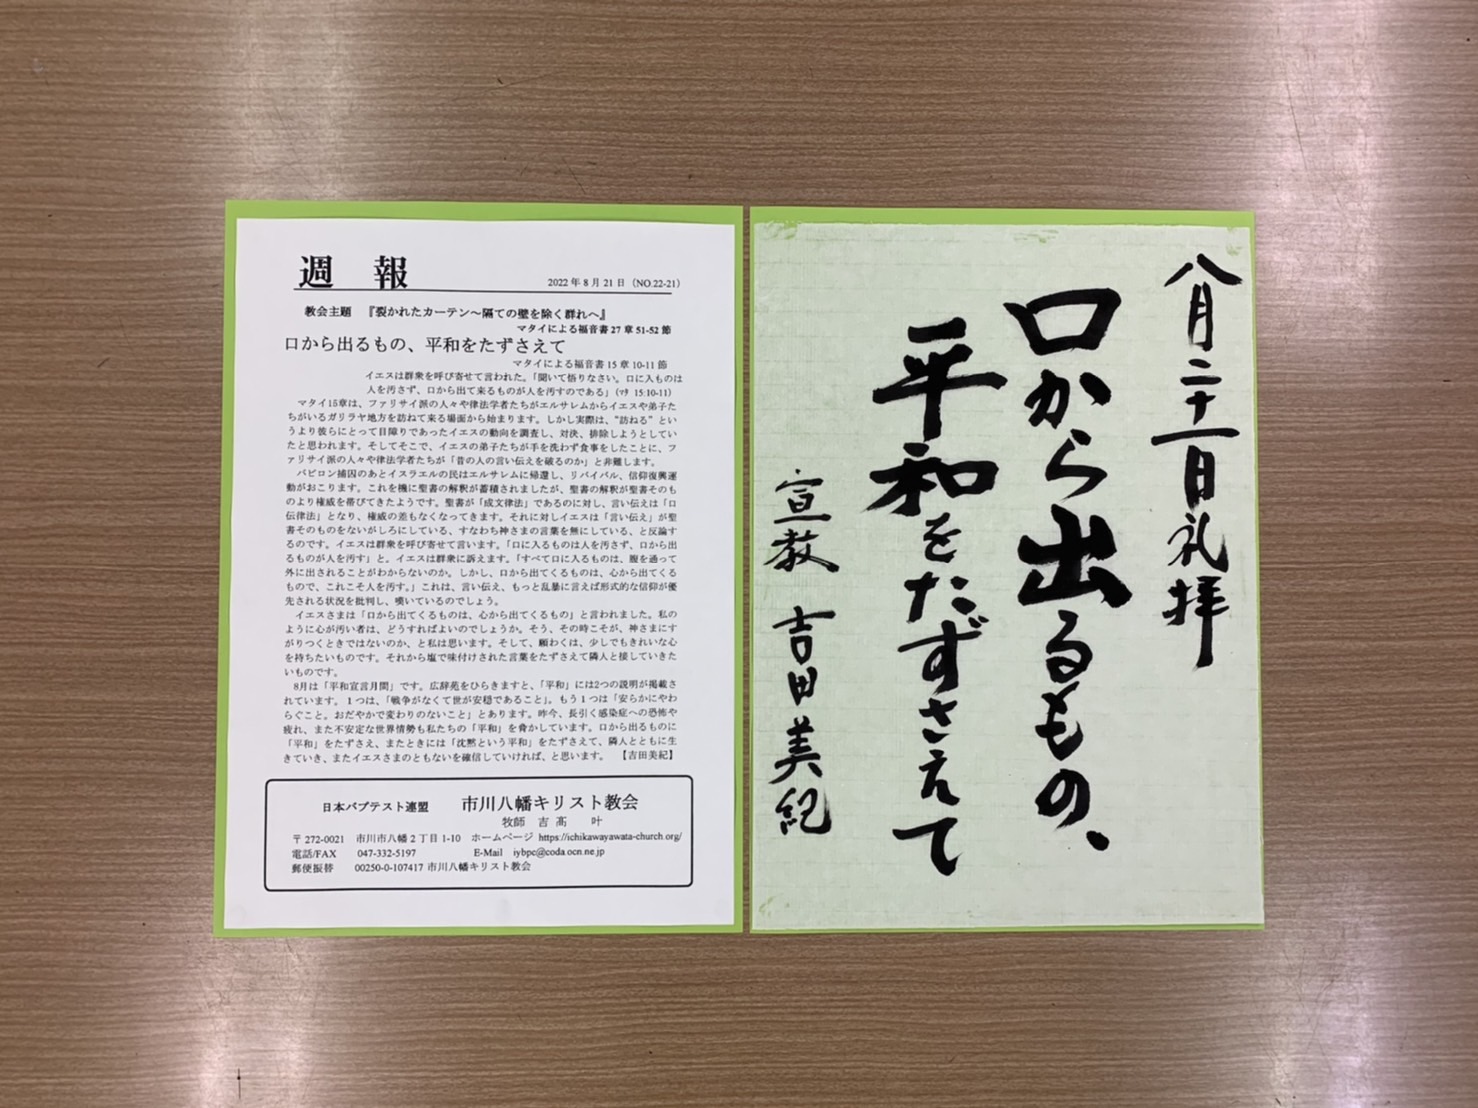 週 報
2022年8月21日（NO.22-21）
教会主題 『裂かれたカーテン～隔ての壁を除く群れへ』
マタイによる福音書27章51-52節
口から出るもの、平和をたずさえて
マタイによる福音書15章10-11節
イエスは群衆を呼び寄せて言われた。「聞いて悟りなさい。口に入るものは
人を汚さず、口から出て来るものが人を汚すのである」（ﾏﾀ 15:10-11）
マタイ15章は、ファリサイ派の人々や律法学者たちがエルサレムからイエスや弟子た
ちがいるガリラヤ地方を訪ねて来る場面から始まります。しかし実際は、“訪ねる”とい
うより彼らにとって目障りであったイエスの動向を調査し、対決、排除しようとしてい
たと思われます。そしてそこで、イエスの弟子たちが手を洗わず食事をしたことに、フ
ァリサイ派の人々や律法学者たちが「昔の人の言い伝えを破るのか」と非難します。
バビロン捕囚のあとイスラエルの民はエルサレムに帰還し、リバイバル、信仰復興運
動がおこります。これを機に聖書の解釈が蓄積されましたが、聖書の解釈が聖書そのも
のより権威を帯びてきたようです。聖書が「成文律法」であるのに対し、言い伝えは「口
伝律法」となり、権威の差もなくなってきます。それに対しイエスは「言い伝え」が聖
書そのものをないがしろにしている、すなわち神さまの言葉を無にしている、と反論す
るのです。イエスは群衆を呼び寄せて言います。「口に入るものは人を汚さず、口から出
るものが人を汚す」と。イエスは群衆に訴えます。「すべて口に入るものは、腹を通って
外に出されることがわからないのか。しかし、口から出てくるものは、心から出てくる
もので、これこそ人を汚す。」これは、言い伝え、もっと乱暴に言えば形式的な信仰が優
先される状況を批判し、嘆いているのでしょう。
イエスさまは「口から出てくるものは、心から出てくるもの」と言われました。私の
ように心が汚い者は、どうすればよいのでしょうか。そう、その時こそが、神さまにす
がりつくときではないのか、と私は思います。そして、願わくは、少しでもきれいな心
を持ちたいものです。それから塩で味付けされた言葉をたずさえて隣人と接していきた
いものです。
8月は「平和宣言月間」です。広辞苑をひらきますと、「平和」には2つの説明が掲載さ
れています。1つは、「戦争がなくて世が安穏であること」。もう1つは「安らかにやわ
らぐこと。おだやかで変わりのないこと」とあります。昨今、長引く感染症への恐怖や
疲れ、また不安定な世界情勢も私たちの「平和」を脅かしています。口から出るものに
「平和」をたずさえ、またときには「沈黙という平和」をたずさえて、隣人とともに生
きていき、またイエスさまのともないを確信していければ、と思います。 【吉田美紀】
日本バプテスト連盟 市川八幡キリスト教会
牧師 吉髙 叶
〒272-0021 市川市八幡2丁目1-10 ホームページ https://ichikawayawata-church.org/
電話/FAX 047-332-5197 E-Mail iybpc@coda.ocn.ne.jp
郵便振替 00250-0-107417 市川八幡キリスト教会
八月二十一日礼拝
口から出るもの、
平和をたずさえて
宣教 吉田美紀